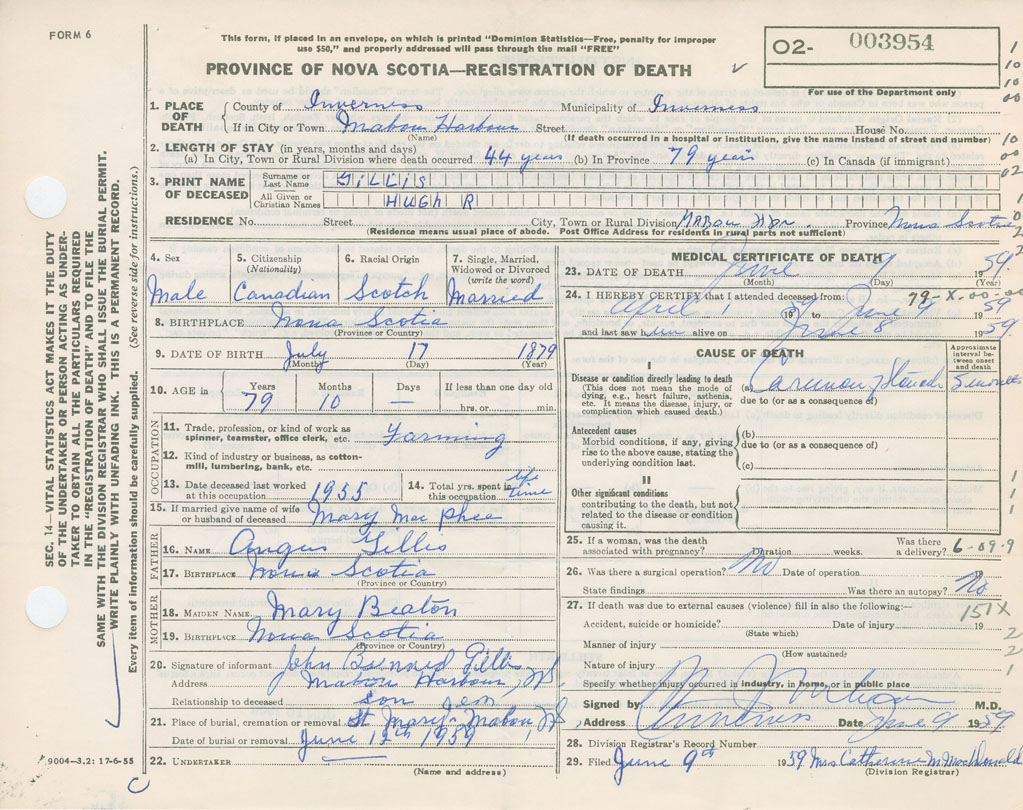 FORM 6
This form, if placed in an envelope, on which is printed "Dominion Statistics—Free, penalty for improper
use $50," and properly addressed will pass through the mail "FREE"
PROVINCE OF NOVA SCOTIA—REGISTRATION OF DEATH
02- 003954
For use of the Department only
1. PLACE OF DEATH County of Inverness Municipality of Inverness
If in City or Town Mabou Harbour Street House No.
(Name) (If death occurred in a hospital or institution, give the name instead of street and number)
2. LENGTH OF STAY (in years, months and days)
(a) In City, Town or Rural Division where death occurred 44 years (b) In Province 79 years (c) In Canada (if immigrant)
3. PRINT NAME OF DECEASED
Surname or Last Name GILLIS
All Given or Christian Names HUGH R
RESIDENCE No. Street City, Town or Rural Division MABOU Hbr. Province Nova Scotia
(Residence means usual place of abode. Post Office Address for residents in rural parts not sufficient)
4. Sex Male
5. Citizenship (Nationality) Canadian
6. Racial Origin Scotch
7. Single, Married, Widowed or Divorced (write the word) Married
8. BIRTHPLACE Nova Scotia
(Province or Country)
9. DATE OF BIRTH July 17 1879
(Month) (Day) (Year)
10. AGE in Years 79 Months 10 Days — If less than one day old hrs. or min.
OCCUPATION
11. Trade, profession, or kind of work as spinner, teamster, office clerk, etc. Farming
12. Kind of industry or business, as cotton-mill, lumbering, bank, etc.
13. Date deceased last worked at this occupation 1955
14. Total yrs. spent in this occupation life time
15. If married give name of wife or husband of deceased Mary Mac Phee
FATHER
16. NAME Angus Gillis
17. BIRTHPLACE Nova Scotia
(Province or Country)
MOTHER
18. MAIDEN NAME Mary Beaton
19. BIRTHPLACE Nova Scotia
(Province or Country)
20. Signature of informant John Bernard Gillis
Address Mabou Harbour, NS
Relationship to deceased Son
21. Place of burial, cremation or removal St Mary's Mabou, NS
Date of burial or removal June 12th 1959
22. UNDERTAKER
(Name and address)
9004-3.2: 17-6-55
MEDICAL CERTIFICATE OF DEATH
23. DATE OF DEATH June 9 1959.
(Month) (Day) (Year)
24. I HEREBY CERTIFY that I attended deceased from: 79-X-00-00
April 1 1959 to June 9 1959
and last saw him alive on June 8 1959.
CAUSE OF DEATH
Approximate interval between onset and death
I
Disease or condition directly leading to death (a)
(This does not mean the mode of dying, e.g., heart failure, asthenia, etc. It means the disease, injury, or complication which caused death.)
due to (or as a consequence of)
Antecedent causes
Morbid conditions, if any, giving rise to the above cause, stating the underlying condition last.
(b)
due to (or as a consequence of)
(c)
II
Other significant conditions
contributing to the death, but not related to the disease or condition causing it.
25. If a woman, was the death associated with pregnancy? Duration weeks. Was there a delivery? 6-09-9
26. Was there a surgical operation? No Date of operation 19
State findings Was there an autopsy? No
27. If death was due to external causes (violence) fill in also the following:—
151X
Accident, suicide or homicide? Date of injury 19
(State which)
Manner of injury
(How sustained)
Nature of injury
Specify whether injury occurred in industry, in home, or in public place
Signed by M.D.
Address Inverness Date June 9 1959
28. Division Registrar's Record Number
29. Filed June 9th 1959 Mrs Catherine M MacDonald
(Division Registrar)
SEC. 14—VITAL STATISTICS ACT MAKES IT THE DUTY
OF THE UNDERTAKER OR PERSON ACTING AS UNDER-
TAKER TO OBTAIN ALL THE PARTICULARS REQUIRED
IN THE "REGISTRATION OF DEATH" AND TO FILE THE
SAME WITH THE DIVISION REGISTRAR WHO SHALL ISSUE THE BURIAL PERMIT.
WRITE PLAINLY WITH UNFADING INK. THIS IS A PERMANENT RECORD.
Every item of information should be carefully supplied. (See reverse side for instructions.)